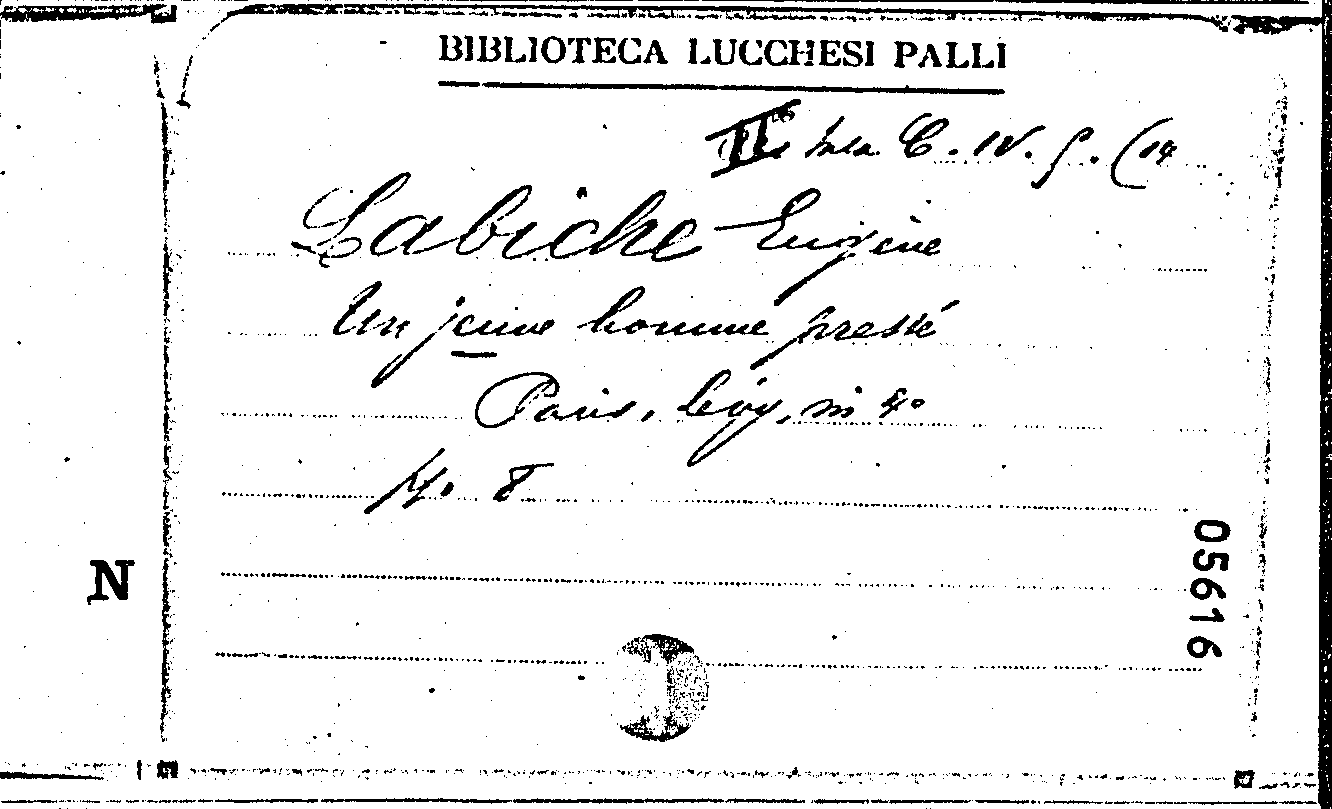 BIBLIOTECA LUCCHESI PALLI
II Sala C. IV. 5. (14
Labiche Eugène
Un jeune homme pressé
Paris, Lévy, in 4º
N
05616